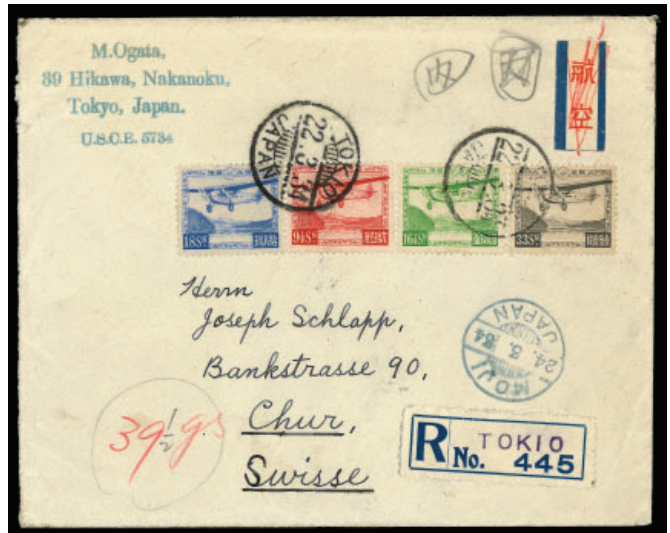 M.Ogata,
39 Hikawa, Nakanoku,
Tokyo, Japan.
U.S.C.E. 5734
内
航
空
TOKIO
22.3.34
JAPAN
18Sn
9½Sn
16½Sn
33Sn
Herrn
Joseph Schlapp,
Bankstrasse 90,
Chur,
Swisse
MOJI
24.3.34
JAPAN
39½ gs
R TOKIO
No. 445